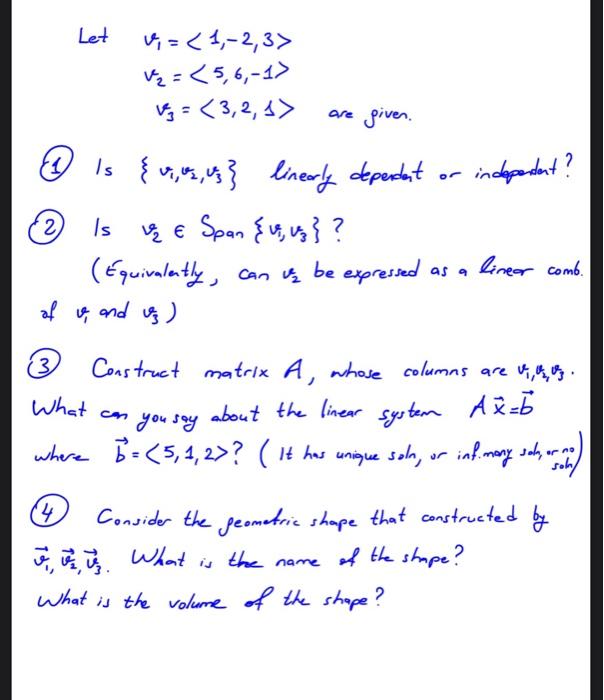 Let v₁ = < 1, -2, 3>
v₂ = < 5, 6, -1>
v₃ = < 3, 2, 1> are given.
① Is { v₁, v₂, v₃ } linearly dependent or independent?
② Is v₂ ∈ Span { v₁, v₃ } ?
(Equivalently, can v₂ be expressed as a linear comb.
of v₁ and v₃ )
③ Construct matrix A, whose columns are v₁, v₂, v₃.
What can you say about the linear system A x⃗ = b⃗
where b⃗ = <5, 1, 2>? ( It has unique soln, or inf. many soln, or no soln)
④ Consider the geometric shape that constructed by
v⃗₁, v⃗₂, v⃗₃. What is the name of the shape?
What is the volume of the shape?